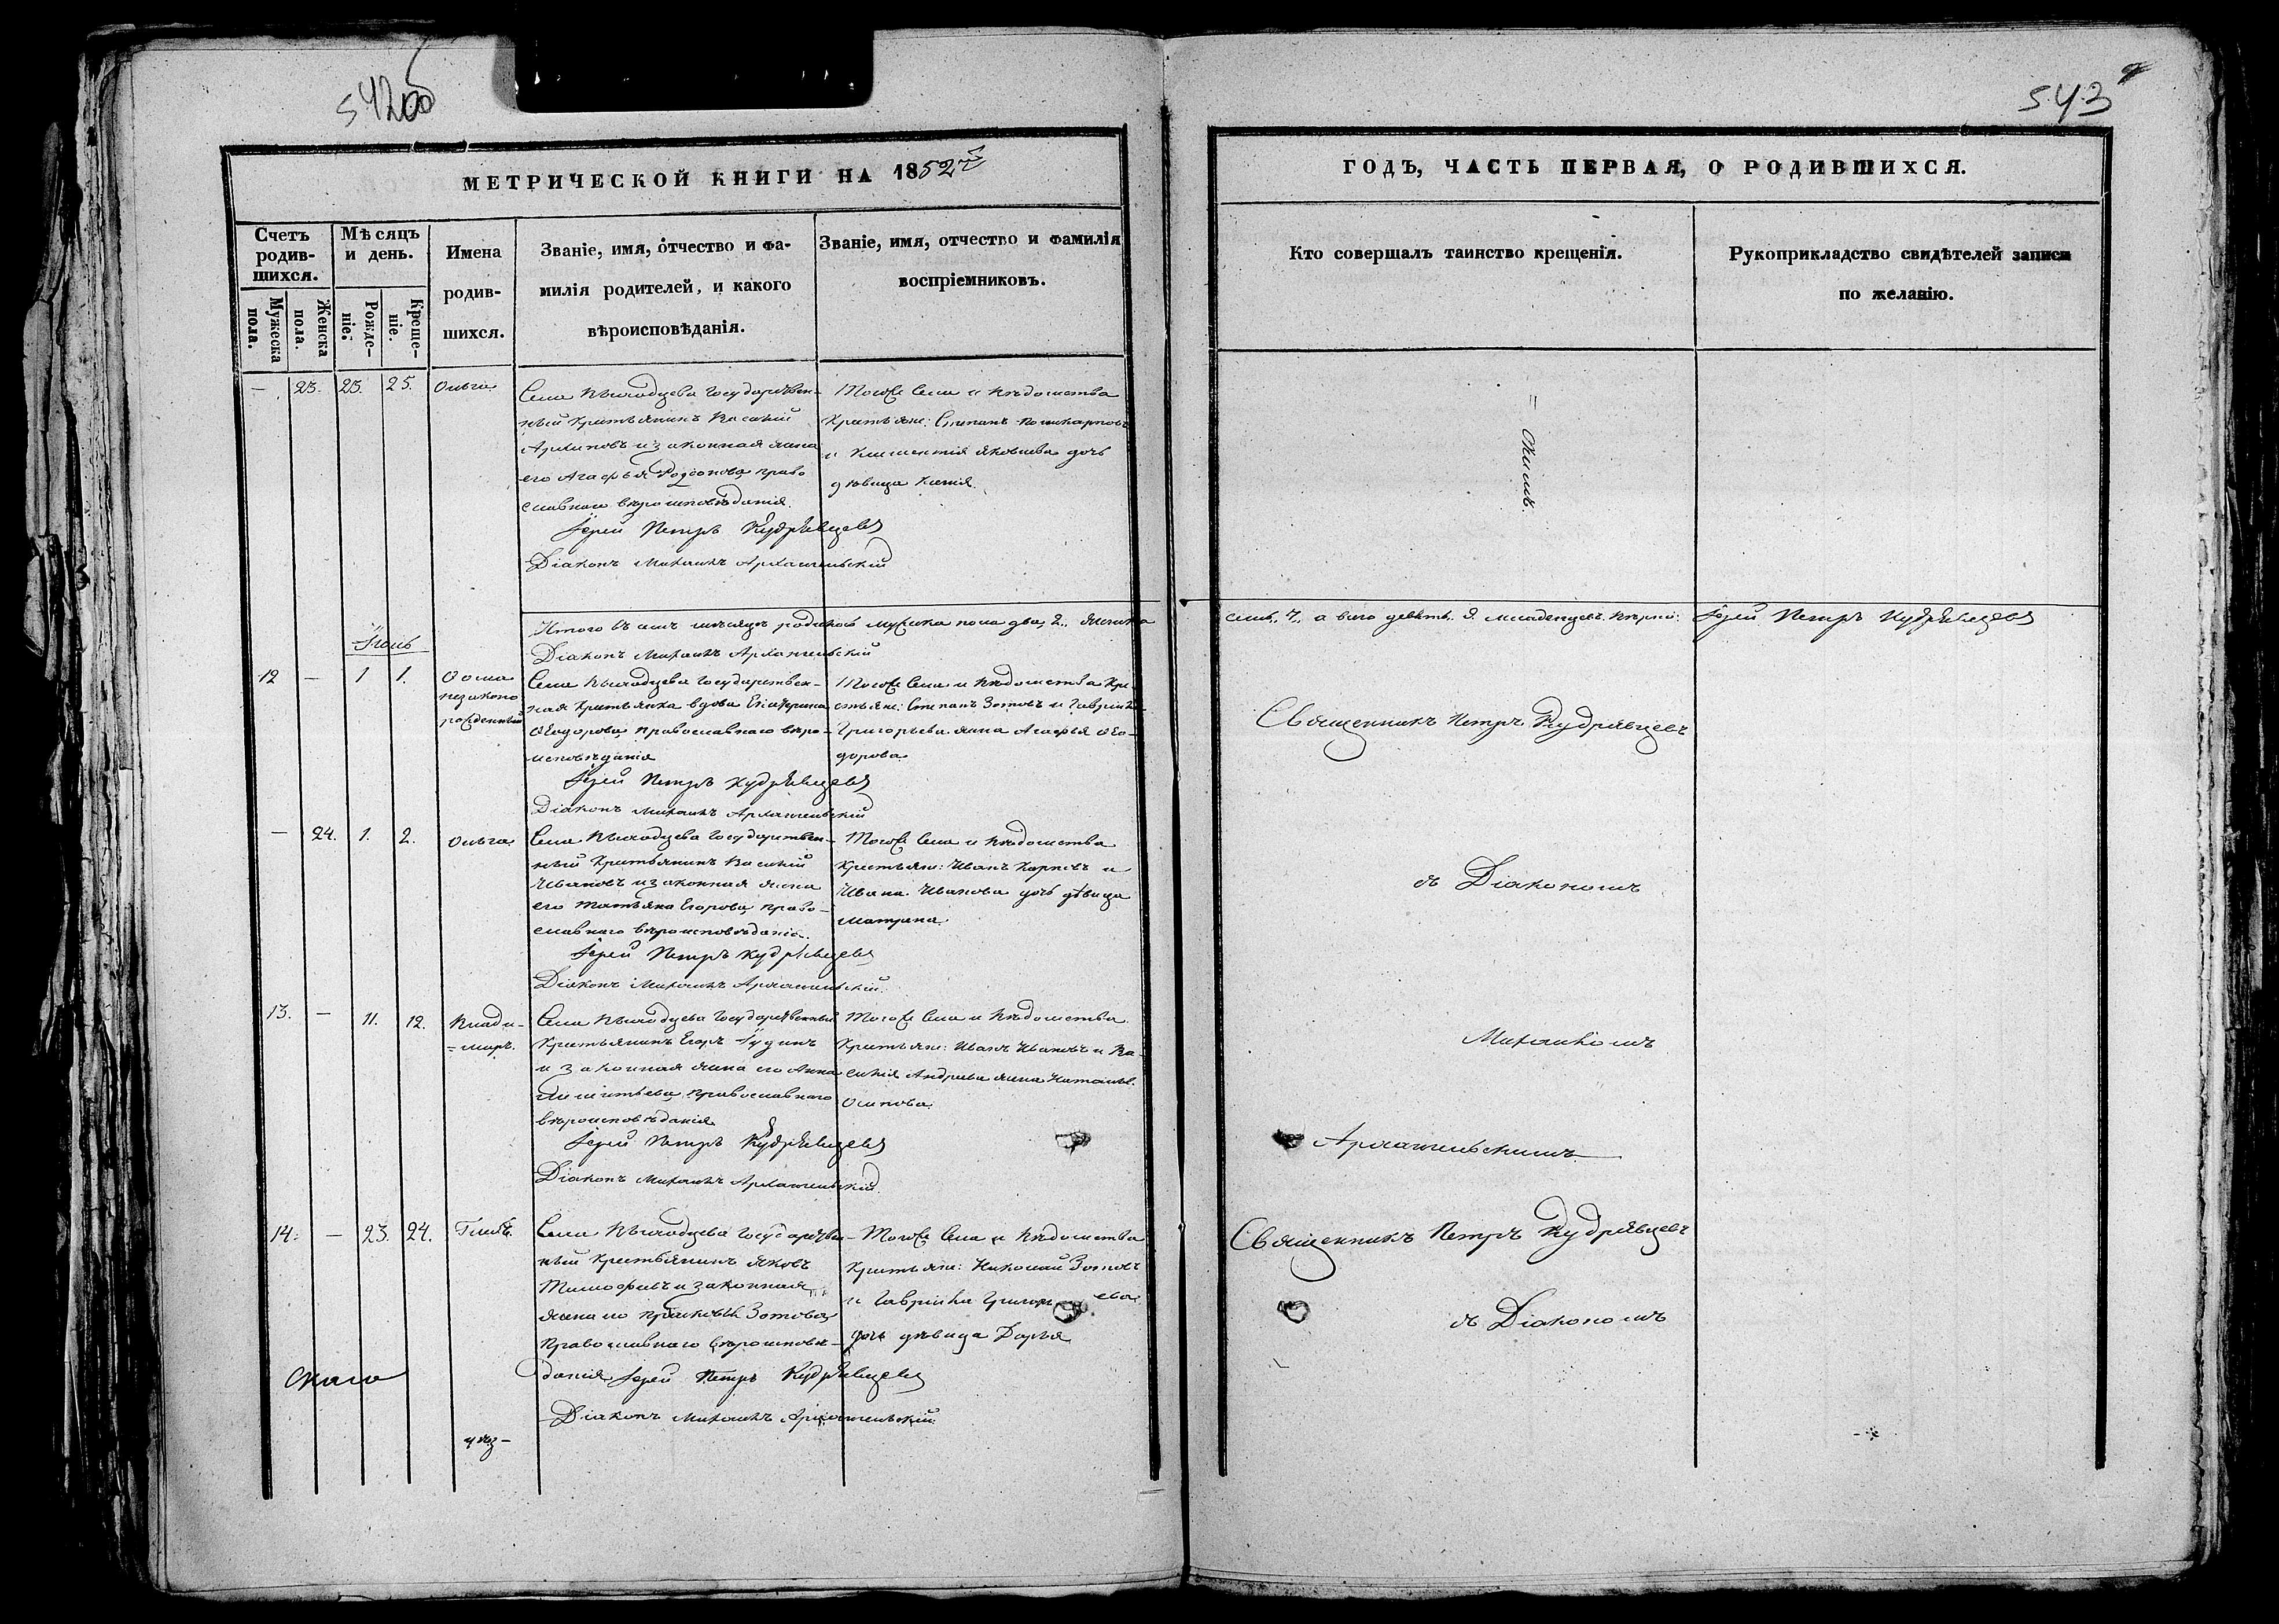 542об
543
МЕТРИЧЕСКОЙ КНИГИ НА 1852й
ГОДЪ, ЧАСТЬ ПЕРВАЯ, О РОДИВШИХСЯ.
Счетъ родив-шихся.
Мужеска пола.
Женска пола.
Мѣсяцъ и день.
Рожде-ніе.
Креще-ніе.
Имена
родив-
шихся.
Званіе, имя, отчество и фа-
милія родителей, и какого
вѣроисповѣданія.
Званіе, имя, отчество и фамилія
воспріемниковъ.
Кто совершалъ таинство крещенія.
Рукоприкладство свидѣтелей записи
по желанію.
— 23. 23. 25. Ольга
Села государствен-
ный крестьянинъ Василій
Архиповъ и законная жена
его Агафья Родіонова право
славнаго вѣроисповѣданія.
Іерей Петръ Кудрявцевъ
Діаконъ Михаилъ Архангельскій
Тогоже села и вѣдомства
крестьяне: Степанъ Поликарповъ
и Климентія Яковлева дочь
дѣвица Ксенія.
Итого въ маѣ мѣсяцѣ родилось мужска пола два, 2., женска
семь, 7., а всего девять, 9. младенцевъ. Вѣрно: Іерей Петръ Кудрявцевъ
Діаконъ Михаилъ Архангельскій
Іюнь
12 — 1 1. Ѳома
незаконо
рожденный
Села государствен-
ная крестьянка вдова Екатерина
Ѳеодорова православнаго вѣро-
исповѣданія
Іерей Петръ Кудрявцевъ
Діаконъ Михаилъ Архангельскій
Тогоже села и вѣдомства кре-
стьяне: Степанъ Зотовъ и Гавріила
Григорьева жена Агафья Ѳео-
дорова.
Священникъ Петръ Кудрявцевъ
— 24. 1. 2. Ольга.
Села государствен-
ный крестьянинъ Василій
Ивановъ и законная жена
его Татьяна Егорова право-
славнаго вѣроисповѣданія.
Іерей Петръ Кудрявцевъ
Діаконъ Михаилъ Архангельскій.
Тогоже села и вѣдомства
крестьяне: Иванъ Карповъ и
Ивана Иванова дочь дѣвица
Матрена.
съ Діакономъ
13. — 11. 12. Влади-
=миръ.
Села государственный
крестьянинъ Егоръ
и законная жена его Анна
православнаго
вѣроисповѣданія
Іерей Петръ Кудрявцевъ
Діаконъ Михаилъ Архангельскій.
Тогоже села и вѣдомства
крестьяне: Иванъ Ивановъ и Ва-
силія Андреева жена Наталья
Осипова.
Михаиломъ
Архангельскимъ
14. — 23. 24. Глѣбъ.
Села государствен-
ный крестьянинъ Яковъ
Тимофеевъ и законная
жена его Прасковья Зотова
православнаго вѣроисповѣ-
данія Іерей Петръ Кудрявцевъ
Діаконъ Михаилъ Архангельскій.
Тогоже села и вѣдомства
крестьяне: Николай Зотовъ
и Гавріила Григорьева
дочь дѣвица Дарья
Священникъ Петръ Кудрявцевъ
съ Діакономъ
скаго
уѣз-